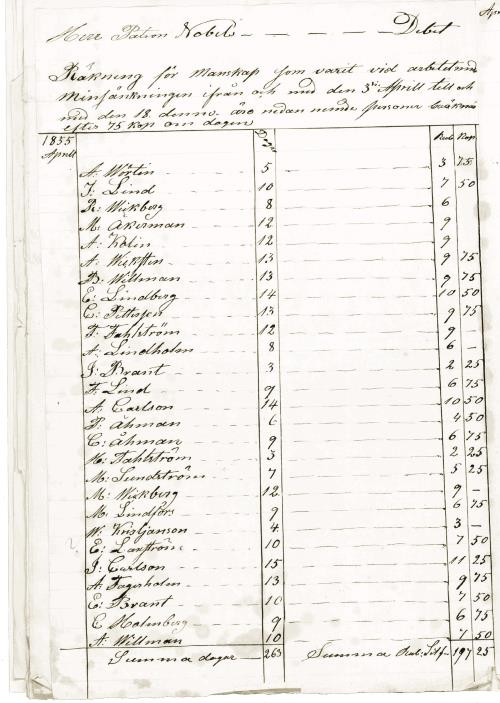 Herr Patron Nobel - - - - Debet
Räkning för manskap som varit vid arbetet med
minsänkningen ifrån och med den 3:e Aprill till och
med den 18 denna. äro nedan nemde personer beräknade
efter 75 kop om dagen
1855 Dagar Rub Kop
Aprill
A: Wörtin 5 3 75
J: Lind 10 7 50
R: Wickberg 8 6
M: Åkerman 12 9
A: Kälin 12 9
A: 13 9 75
B: Willman 13 9 75
E: Lindberg 14 10 50
C: Pettersen 13 9 75
F: Fahlström 12 9 -
A: Lindholm 8 6 -
J: Brant 3 2 25
F: Lind 9 6 75
A: Carlson 14 10 50
P: Åhman 6 4 50
C: Åhman 9 6 75
H: Fahlström 3 2 25
M: Sundström 7 5 25
M: Wickberg 12 9 -
M: Lindfors 9 6 75
W: Kristjanson 4 3 -
E: Laxström 10 7 50
J: Carlson 15 11 25
A: Fagerholm 13 9 75
E: Brant 10 7 50
C Holmberg 9 6 75
A: Willman 10 7 50
Summa dagar - 263 Summa Rub: Silf - 197 25